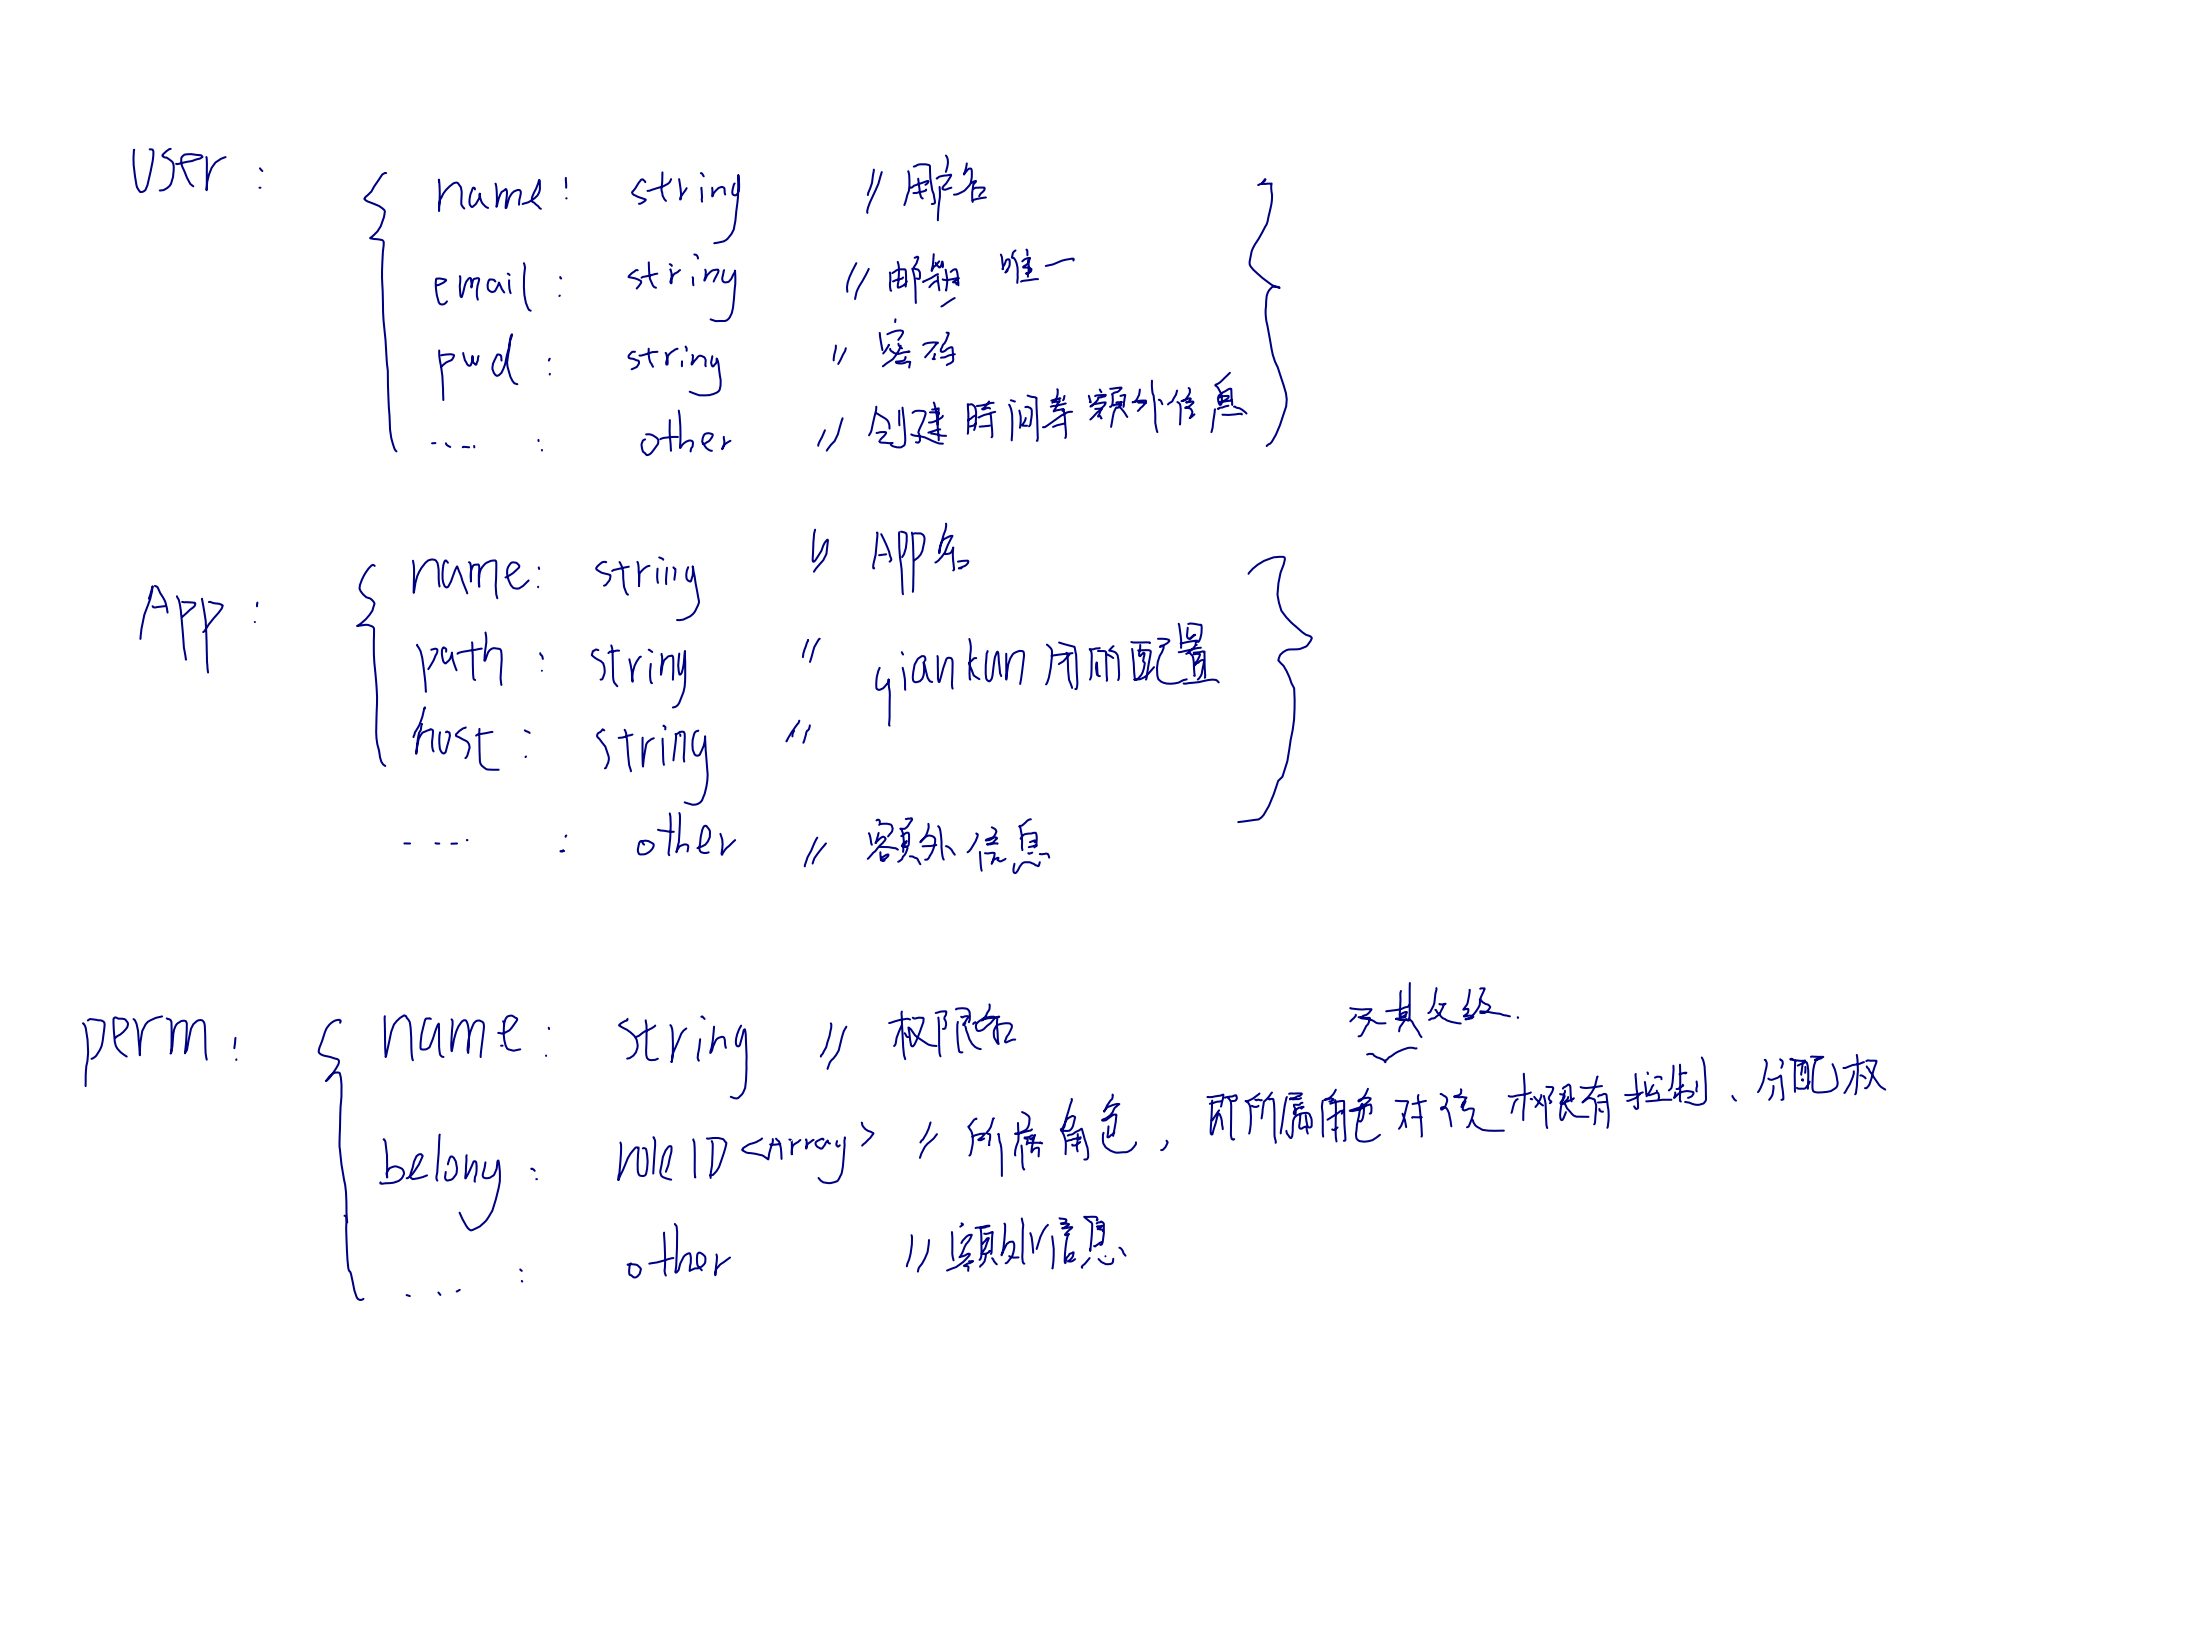 User : { name : string // 用户名 }
email : string // 邮箱 唯一
pwd : string // 密码
... : other // 创建时间等额外信息
App : { name : string // App名 }
path : string // qiankun 所需配置
host : string //
.... : other // 额外信息
perm : { name : string // 权限名
及其父级.
belong : roleID <Array> // 所属角色, 即所属角色对该权限有控制、分配权
... : other // 额外信息